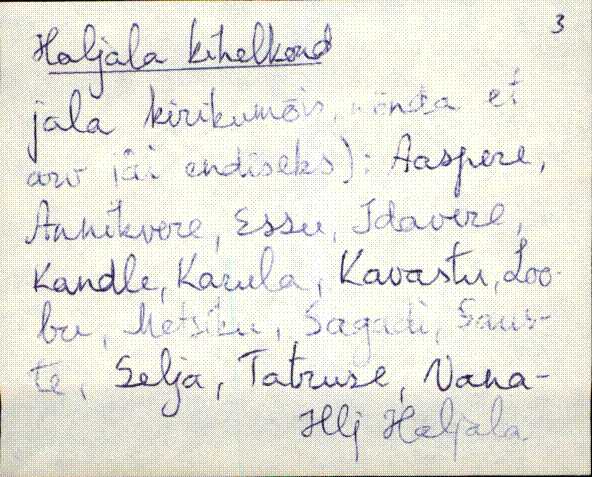 3
Haljala kihelkond
jala kirikumõis, nõnda et
arv jäi endiseks): Aaspere,
Annikvere, Essu, Idavere,
Kandle, Karula, Kavastu, Loo-
bu, Metsiku, Sagadi, Saus-
te, Selja, Tatruse, Vana-
Hlj Haljala